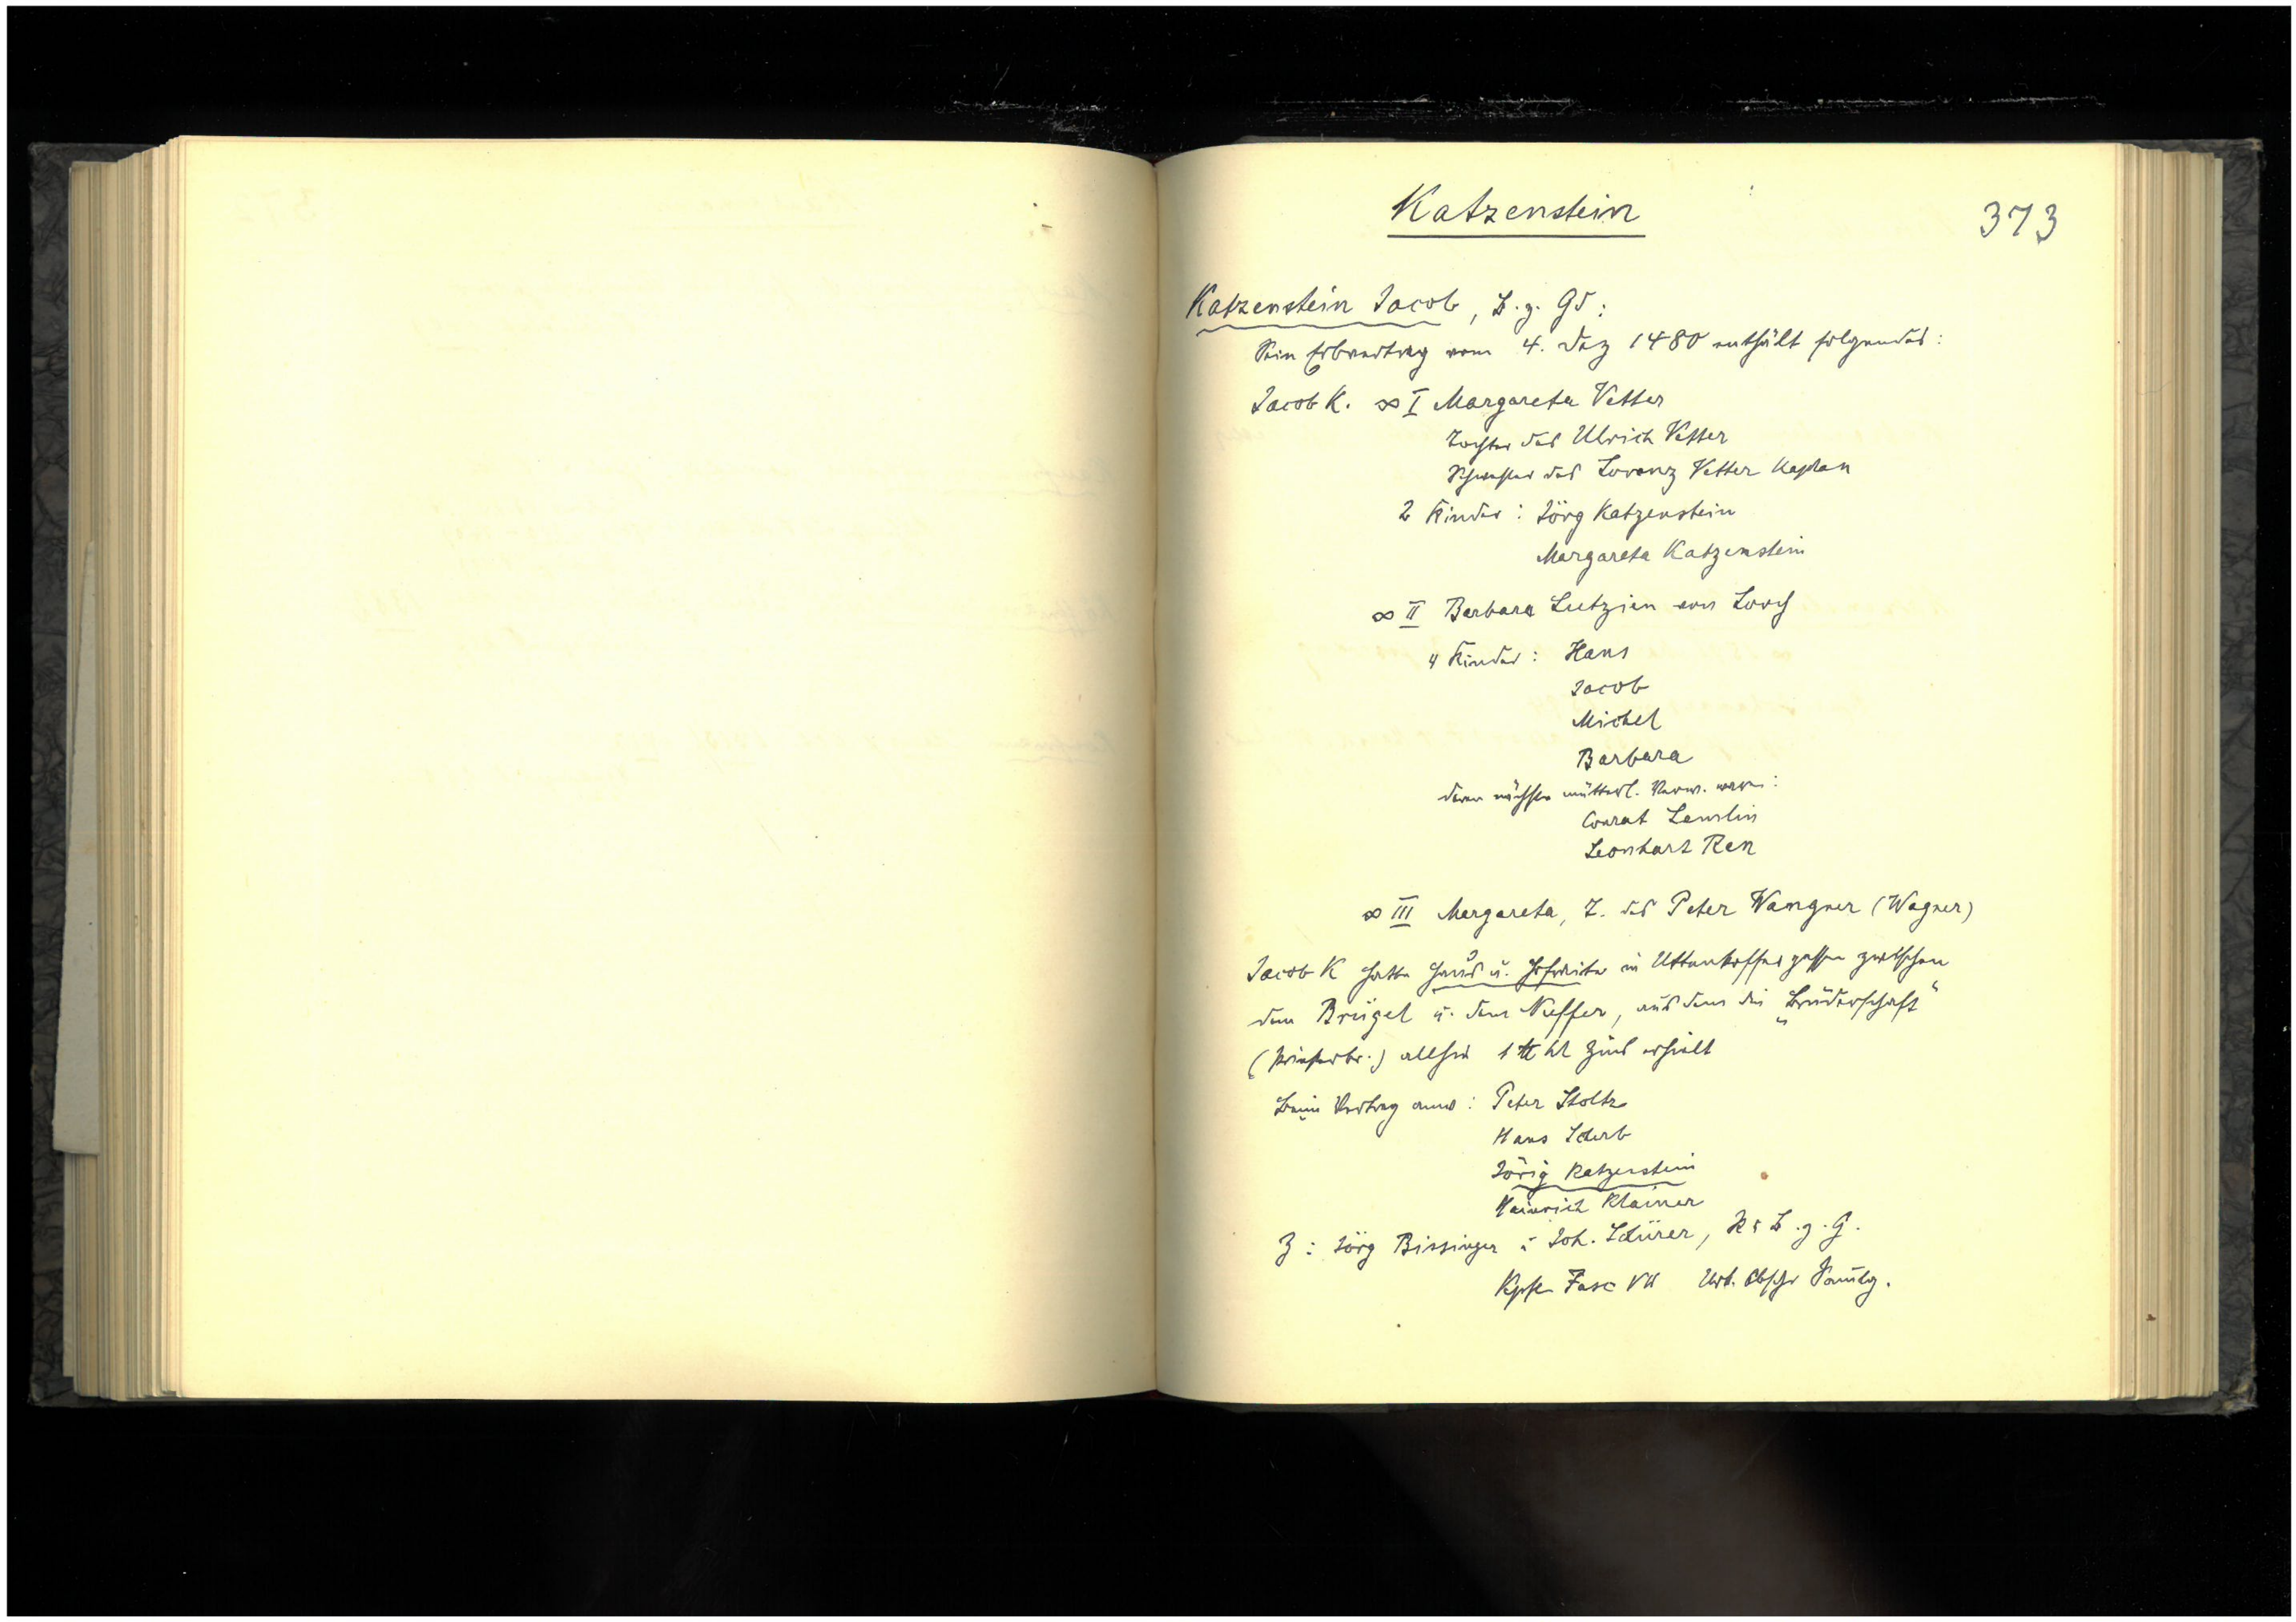 Katzenstein
373
Katzenstein Jacob, B. z. Gd:
Sein Erbvertrag vom 4. Dez 1480 enthält folgendes:
Jacob K. ∞ I Margareta Vetter
Tochter des Ulrich Vetter
Schwester des Lorenz Vetter Kaplan
2 Kinder: Jörg Katzenstein
Margareta Katzenstein
∞ II Barbara Lutzien von Lorch
4 Kinder: Hans
Jacob
Michel
Barbara
deren nächste mütterl. Verw. waren:
Conrat Lemlin
Leonhart Ren
∞ III Margareta, T. des Peter Wangner (Wagner)
Jacob K hatte Haus u. Hofreite in Uttenkoffer gassen zwischen
dem Brügel u. dem Nuffer, aus dem die „Bruderschaft"
(Priesterbr.) allhie 1 ℔ hl Zins erhielt
Beim Vertrag anw: Peter Stoltz
Hans Scherb
Jörig Katzenstein
Hainrich Klainer
Z: Jörg Bissinger u Joh. Schürer, B. z. G.
Fasc VII Urk. Abschr